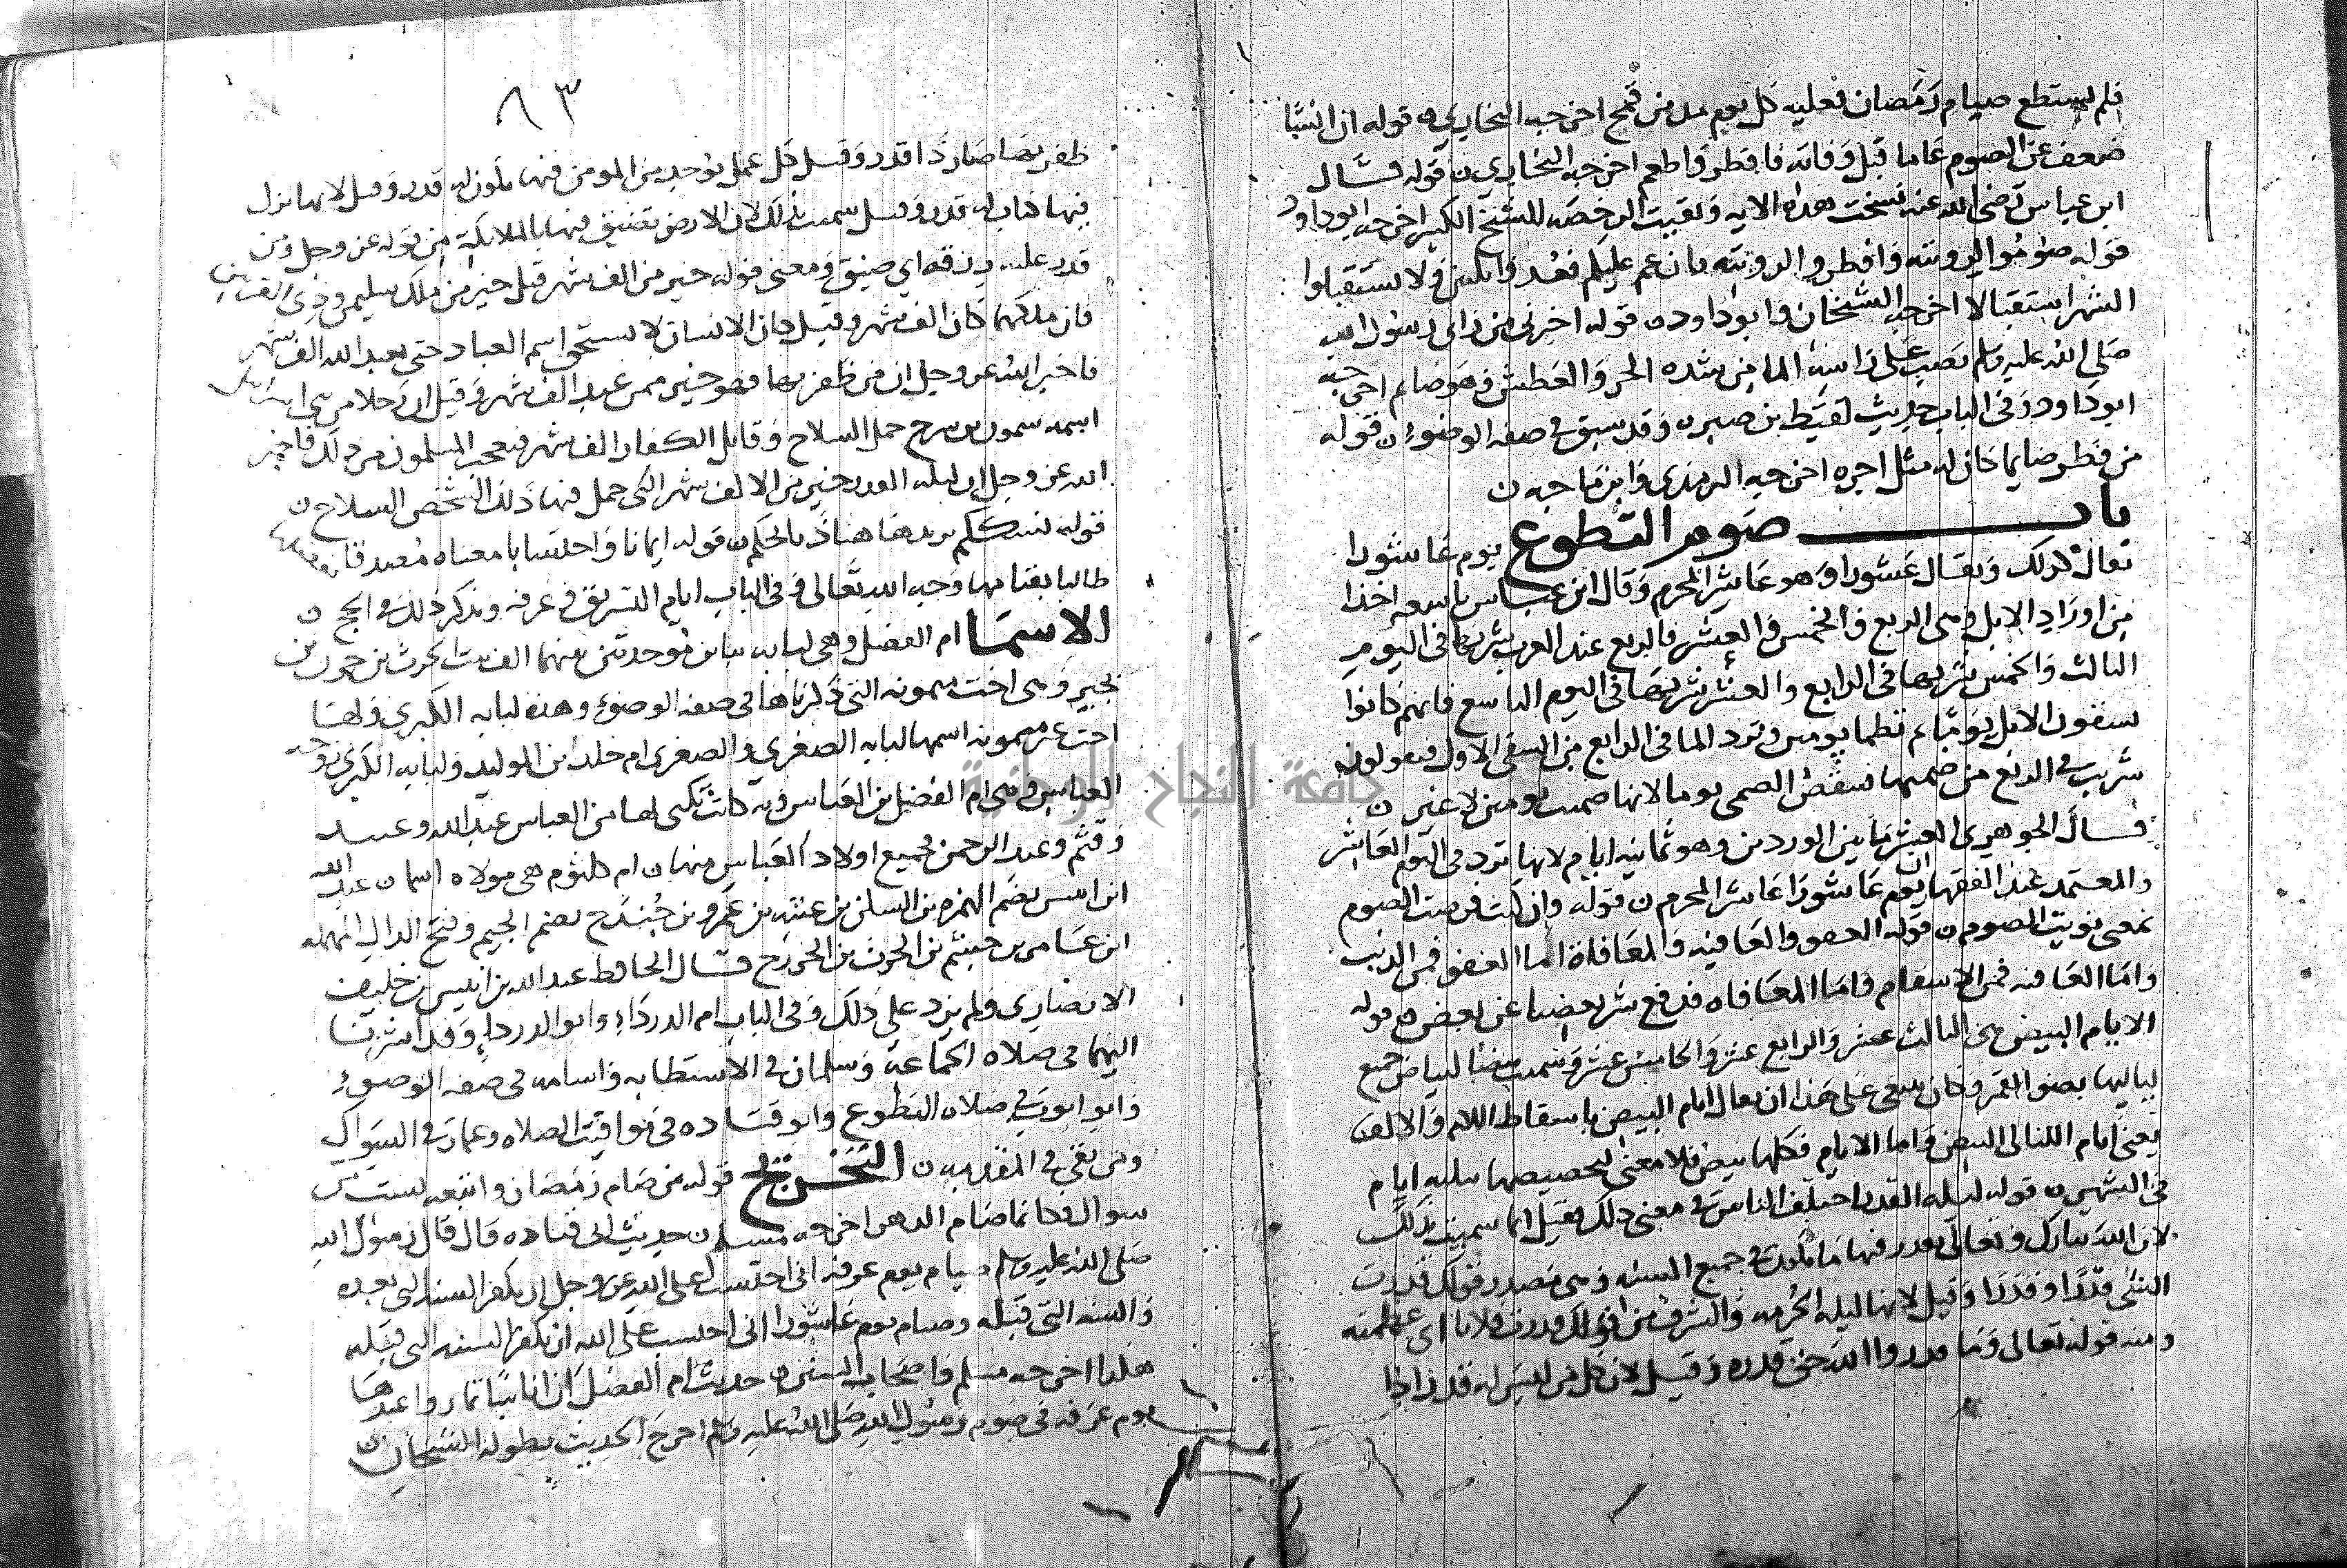 فلم يستطع صيام رمضان فعليه كل يوم مد من قمح اخرجه البخاري ن قوله ان انسا
ضعف عن الصوم عاما قبل وفاته فافطر واطعم اخرجه البخاري ن قوله قال
ابن عباس رضي الله عنه نسخت هذه الايه وبقيت الرخصه للشيخ الكبير اخرجه ابوداود
قوله صوموا لرويته وافطروا لرويته فان غم عليكم فعد ثلاثين ولا تستقبلوا
الشهر استقبالا اخرجه الشيخان وابوداود ن قوله اخبرني من راى رسول الله
صلى الله عليه وسلم يصب على راسه الما من شده الحر والعطش وهو صايم اخرجه
ابوداود وفي الباب حديث لقيط بن صبره وقد سبق في صفه الوضوء ن قوله
من فطر صايما كان له مثل اجره اخرجه الترمذي وابن ماجه ن
باب صوم التطوع يوم عاشورا
يقال كذلك ويقال عشورا وهو عاشر المحرم وقال ابن عباس تاسعه اخذا
من اوراد الابل وهي الربع والخمس والعشر فالربع عند العرب شربها في اليوم
الثالث والخمس شربها في الرابع والعشر شربها في اليوم التاسع فانهم كانوا
يسقون الابل يوما ثم تظما يومين وترد الما في الرابع من السقي الاول فيقولون
شربت في الربع من يوما لانها يومين لا غير ن
قال الجوهري العشر ما بين الوردين وهو ثمانيه ايام لانها ترد في اليوم العاشر
والمعتمد عند الفقها ان يوم عاشورا عاشر المحرم ن قوله وان كنت فرضت الصوم
بمعنى نويت الصوم ن قوله العفو والعافيه والمعافاة اما العفو فمن الذنب
واما العافيه فمن الاسقام واما المعافاه فدفع شر بعضنا عن بعض ن قوله
الايام البيض هي الثالث عشر والرابع عشر والخامس عشر وسميت بيضا لبياض جميع
لياليها بضو القمر وكان ينبغي على هذا ان يقال ايام البيض باسقاط اللام والالف
يعني ايام الليالي البيض واما الايام فكلها بيض فلا معنى لتخصيصها بثلثه ايام
في الشهر ن قوله ليله القدر اختلف الناس في معنى ذلك فقيل انما سميت بذلك
لان الله تبارك وتعالى يقدر فيها ما يكون في جميع السنه وهي مصدر قولك قدرت
الشي قدرا وقدرا وقيل لانها ليله الحرمه والشرف من قولك قدرت فلانا اي عظمته
ومنه قوله تعالى وما قدروا الله حق قدره وقيل لان كل من ليس له قدر اذا
٨٣
ظفر بها صار ذا قدر وقيل كل عمل يوجد من المومن فيها يكون له قدر وقيل لانها نزل
فيها كتاب له قدر وقيل سميت بذلك لان الارض تضيق فيها بالملايكة من قوله عز وجل ومن
قدر عليه رزقه اي ضيق ومعنى قوله خير من الف شهر قيل خير من ملك سليمن وذي القرنين
فان ملكهما كان الف شهر وقيل كان الانسان لا يستحق اسم العباد حتى يعبد الله الف شهر
فاخبر الله عز وجل ان من ظفر بها فهو خير ممن عبد الف شهر وقيل ان رجلا من بني اسرايل
اسمه حمل السلاح وقاتل الكفار الف شهر فتعجب المسلمون من ذلك فاخبر
الله عز وجل ان ليله القدر خير من الالف شهر التي حمل فيها ذلك الشخص السلاح ن
قوله ن قوله ايمانا واحتسابا معناه
طالبا بقيامها وجه الله تعالى وفي الباب ايام التشريق وعرفه ويذكر ذلك في الحج ن
الاسما ام الفضل وهي لبابه بباين موحدتين بينهما الف بنت الحرث بن حزن بن
بجير وهي اخت ميمونه التي ذكرناها في صفه الوضوء وهذه لبابه الكبرى ولها
اخت غير ميمونه اسمها لبابه الصغرى والصغرى ام خلد بن الوليد ولبابه الكبرى زوجه
العباس وهي ام الفضل بن العباس وبه كانت تكنى لها من العباس عبد الله وعبيد الله
وقثم وعبد الرحمن وجميع اولاد العباس منها ن ام كلثوم هي مولاه اسما ن عبد الله
ابن انيس بضم الهمزه بن السكن بن عتبه بن عمرو بن خندج بضم الجيم وفتح الدال المهمله
ابن عامر بن جشم بن الحرث بن الخزرج قال الحافظ عبد الله بن انيس بن خليف
الانصاري ولم يزد على ذلك وفي الباب ام الدرداء وابو الدرداء وقد اشرنا
اليهما في صلاه الجماعة وسلمان في الاستطابه واسامه في صفه الوضوء
وابو ايوب في صلاه التطوع وابو قتاده في مواقيت الصلاه وعمار في السواك
ومن بقي في المقدمه ن التخريج قوله من صام رمضان واتبعه بست من
شوال فكانما صام الدهر اخرجه مسلم ن حديث ابي قتاده قال قال رسول الله
صلى الله عليه وسلم صيام يوم عرفه اني احتسب على الله عز وجل ان يكفر السنه التي بعده
والسنه التي قبله وصيام يوم عاشورا اني احتسب على الله ان يكفر السنه التي قبله
هكذا اخرجه مسلم واصحاب السنن ن حديث ام الفضل ان اناسا تماروا عندها
يوم عرفه في صوم رسول الله صلى الله عليه وسلم اخرج الحديث بطوله الشيخان ن
جامعة النجاح الوطنية